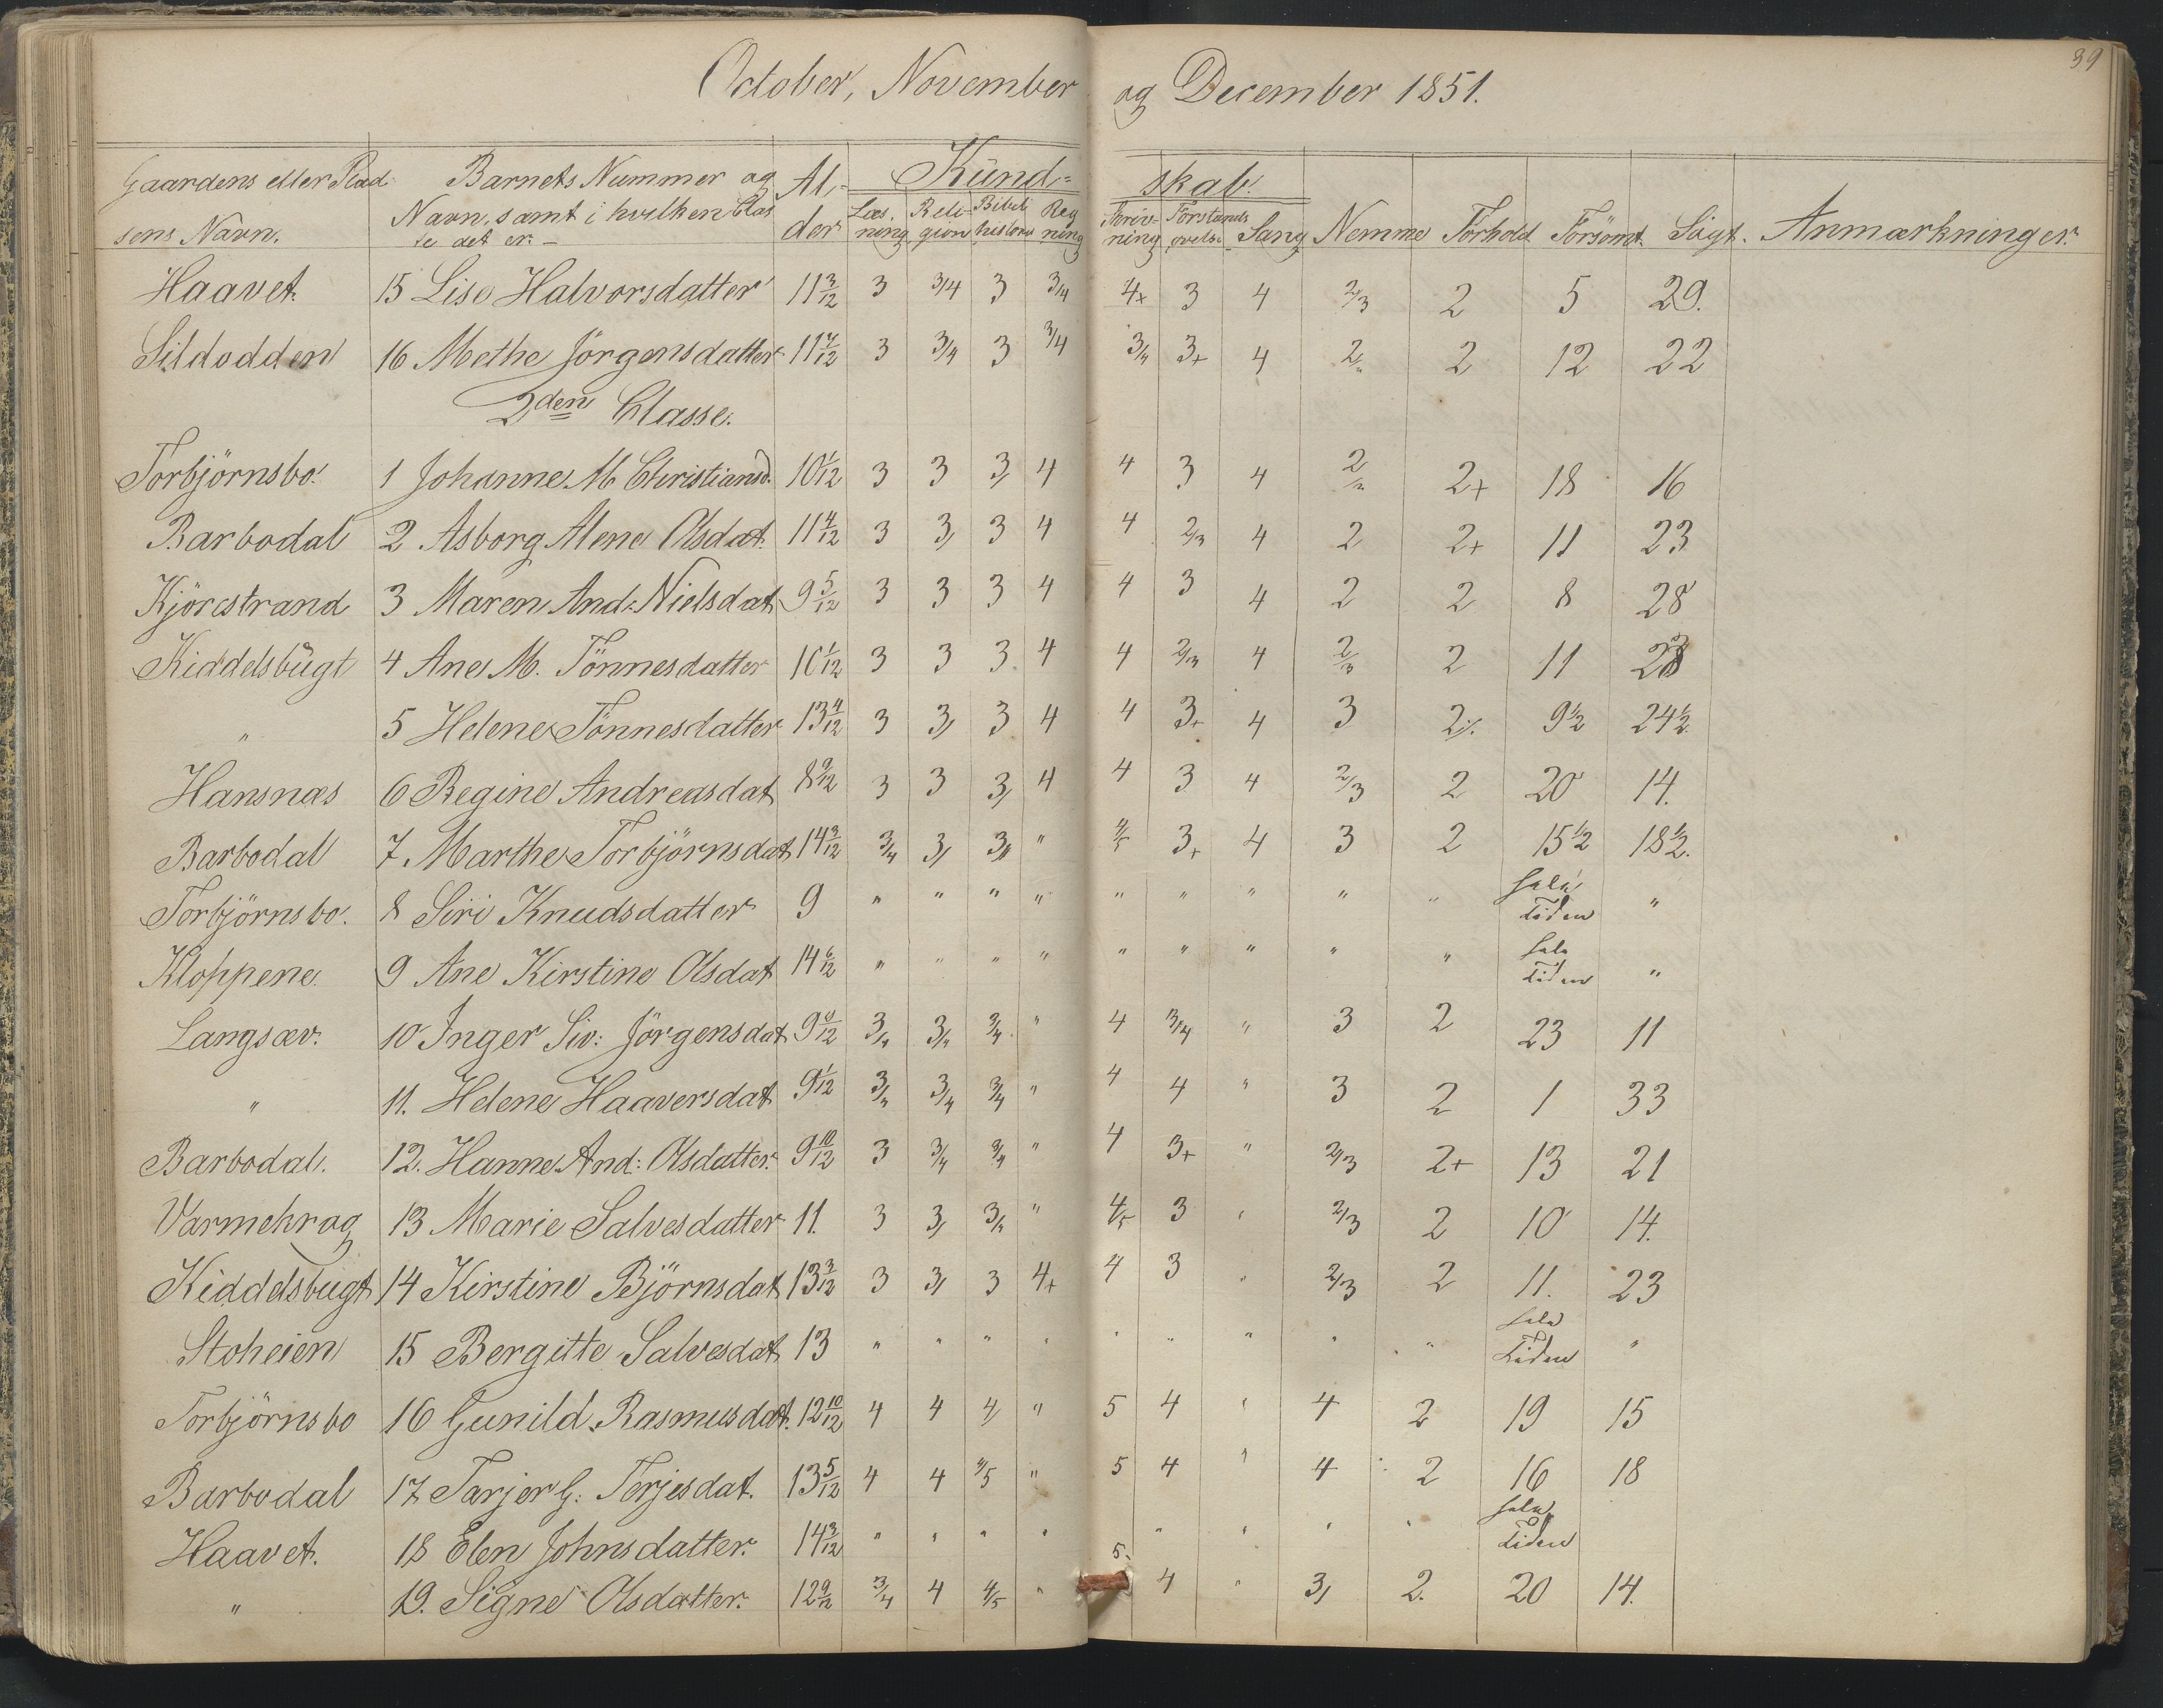 October, November og December 1851.
39
Gaardens eller Plad- Barnets Nummer og Al- Kund- skab.
sens Navn. Navn, samt i hvilken Clas der Læs. Reli- Bibel Reg Skriv- Forstands Sang Nemme Forhold Forsömt. Sögt. Anmærkninger.
se det er. – ning gion historie ning ning övelse
Haavet. 15 Lise Halvorsdatter 11 3/12 3 3/4 3 3/4 4+ 3 4 2/3 2 5 29.
Sildodden 16 Methe Jörgensdatter 11 7/12 3 3/4 3 3/4 3/4 3+ 4 2 2 12 22
2den Classe.
Torbjörnsbo. 1 Johanne M Christiansd. 10 1/12 3 3 3/ 4 4 3 4 2 2+ 18 16
Barbodal 2 Asborg Alene Olsdat. 11 4/12 3 3/ 3 4 4 2/3 4 2 2+ 11 23
Kjörestrand 3 Maren And: Nielsdat 9 5/12 3 3 3 4 4 3 4 2 2 8 28
Kiddelsbugt 4 Ane M. Tönnesdatter 10 1/12 3 3 3. 4 4 2/3 4 2/3 2 11 23
" 5 Helene Tönnesdatter 13 4/12 3 3/ 3 4 4 3+ 4 3 2/. 9 1/2 24 1/2
Hansnæs 6 Regine Andreasdat 8 9/12 3 3 3/ 4 4 3 4 2/3 2 20 14.
Barbodal 7. Marthe Torbjörnsdat 14 3/12 3/4 3/ 3/ " 4/5 3+ 4 3 2 15 1/2 18 1/2.
Torbjörnsbo. 8 Siri Knudsdatter 9 " " " " " " " " " hele Tiden "
Kloppene. 9 Ane Kirstine Olsdat 14 6/12 " " " " " " " " " hele Tiden "
Langsæv. 10 Inger Siv: Jörgensdat 9 /12 3/4 3/4 3/4 " 4 3/4 " 3 2 23 11
" 11. Helene Haaversdat 9 1/12 3/4 3/4 3/4 " 4 4 " 3 2 1 33
Barbodal. 12. Hanne And: Olsdatter. 9 10/12 3 3/4 3/4 " 4 3+ " 2/3 2+ 13 21
Varmekrog 13 Marie Salvesdatter 11. 3 3/ 3/4 " 4/5 3 " 2/3 2 10 14.
Kiddelsbugt 14 Kirstine Björnsdat 13 3/12 3 3/ 3 4+ 4 3 " 2/3 2 11. 23
Stoheien 15 Bergitte Salvesdat 13 " " " " " " " " " hele Tiden "
Torbjörnsbo 16 Gunild Rasmusdat. 12 10/12 4 4 4/ " 5 4 " 4 2 19 15
Barbodal 17 Tarjer G. Terjesdat. 13 5/12 4 4 4/5 " 5 4 " 4 2 16 18
Haavet. 18 Elen Johnsdatter. 14 3/12 " " " " " " " " hele Tiden
" 19. Signe Olsdatter. 12 9/12 3/4 4 4/5 " 5. 4 " 3/ 2. 20 14.